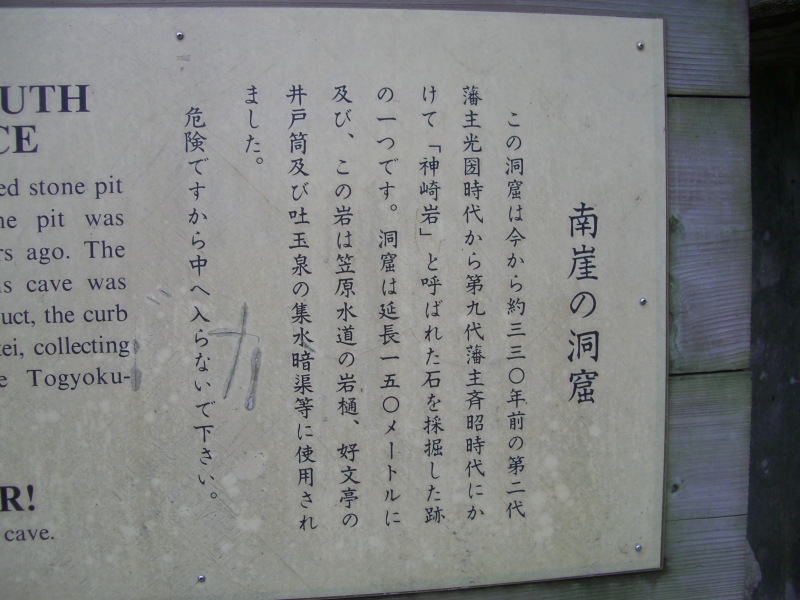 南崖の洞窟
この洞窟は今から約三三〇年前の第二代
藩主光圀時代から第九代藩主斉昭時代にか
けて「神崎岩」と呼ばれた石を採掘した跡
の一つです。洞窟は延長一五〇メートルに
及び、この岩は笠原水道の岩樋、好文亭の
井戸筒及び吐玉泉の集水暗渠等に使用され
ました。
危険ですから中へ入らないで下さい。
UTH
CE
ed stone pit
e pit was
rs ago. The
s cave was
uct, the curb
tei, collecting
e Togyoku-
R!
cave.